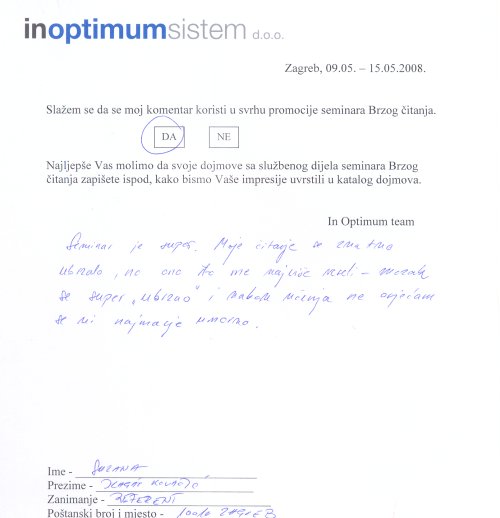 inoptimumsistem d.o.o.
Zagreb, 09.05. – 15.05.2008.
Slažem se da se moj komentar koristi u svrhu promocije seminara Brzog čitanja.
DA NE
Najljepše Vas molimo da svoje dojmove sa službenog dijela seminara Brzog
čitanja zapišete ispod, kako bismo Vaše impresije uvrstili u katalog dojmova.
In Optimum team
Seminar je super. Moje čitanje se znatno
ubrzalo, no ono što me najviše veseli – mozak
se super „ubrzao" i nakon učenja ne osjećam
se ni najmanje umorno.
Ime - SUZANA
Prezime - KOVAČIĆ
Zanimanje - REFERENT
Poštanski broj i mjesto - 10000 ZAGREB